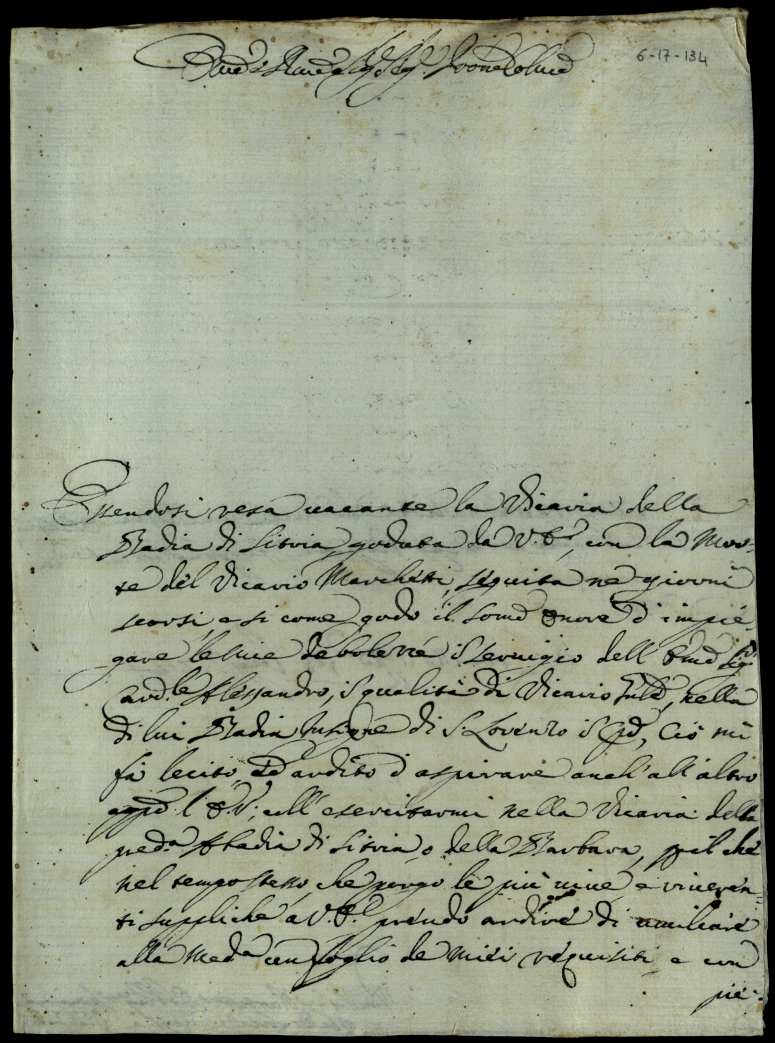 6-17-134
Em̃o e Rmo Sig.r Sig.r Prone Colmo
Essendosi resa vacante la Vicaria della
Badia di Sitria, goduta da V. E.za, con la Mor-
te del Vicario Marchetti, seguita ne giorni
scorsi, e si come godo il somo onore d'impie-
gare le mie debolezze in servigio dell'Emo Sig.r
Card.le Alessandro, in qualità di Vicario Gnle, nella
di lui Badia Insigne di S. Lorenzo in Cpo, Ciò mi
fà lecito, ed ardito d'aspirare anch'all'altro
appo l'E. V. coll'esercitarmi nella Vicaria della
pred.a Abadia di Sitria, o della Barbara, p il che
nel tempo stesso, che porgo le più vive, e riveren-
ti suppliche a V. E.za prendo ardire di umiliare
alla Med.a un foglio de miei requisiti, e con
pie-